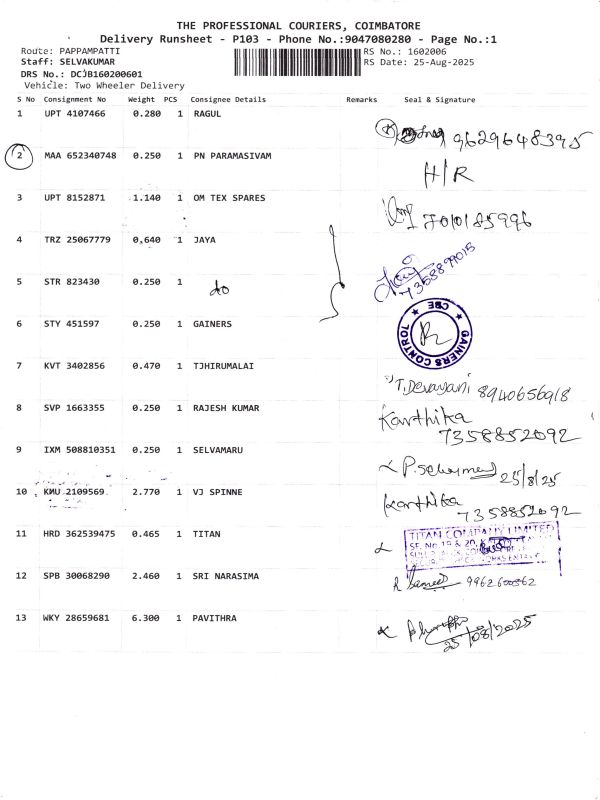 THE PROFESSIONAL COURIERS, COIMBATORE
Delivery Runsheet - P103 - Phone No.:9047080280 - Page No.:1
Route: PAPPAMPATTI RS No.: 1602006
Staff: SELVAKUMAR RS Date: 25-Aug-2025
DRS No.: DCJB160200601
Vehicle: Two Wheeler Delivery
S No Consignment No Weight PCS Consignee Details Remarks Seal & Signature
1 UPT 4107466 0.280 1 RAGUL 9629648395
2 MAA 652340748 0.250 1 PN PARAMASIVAM H/R
3 UPT 8152871 1.140 1 OM TEX SPARES 7010185996
4 TRZ 25067779 0.640 1 JAYA 7358899015
5 STR 823430 0.250 1 do
6 STY 451597 0.250 1 GAINERS GAINERS CONTROL CBE
7 KVT 3402856 0.470 1 TJHIRUMALAI T.Devayani 8940656918
8 SVP 1663355 0.250 1 RAJESH KUMAR Karthika
7358852092
9 IXM 508810351 0.250 1 SELVAMARU 25/8/25
10 KMU 2109569 2.770 1 VJ SPINNE Karthika
7358852092
11 HRD 362539475 0.465 1 TITAN TITAN COMPANY LIMITED
SF. No. 19 & 20,
12 SPB 30068290 2.460 1 SRI NARASIMA
13 WKY 28659681 6.300 1 PAVITHRA
25/08/2025